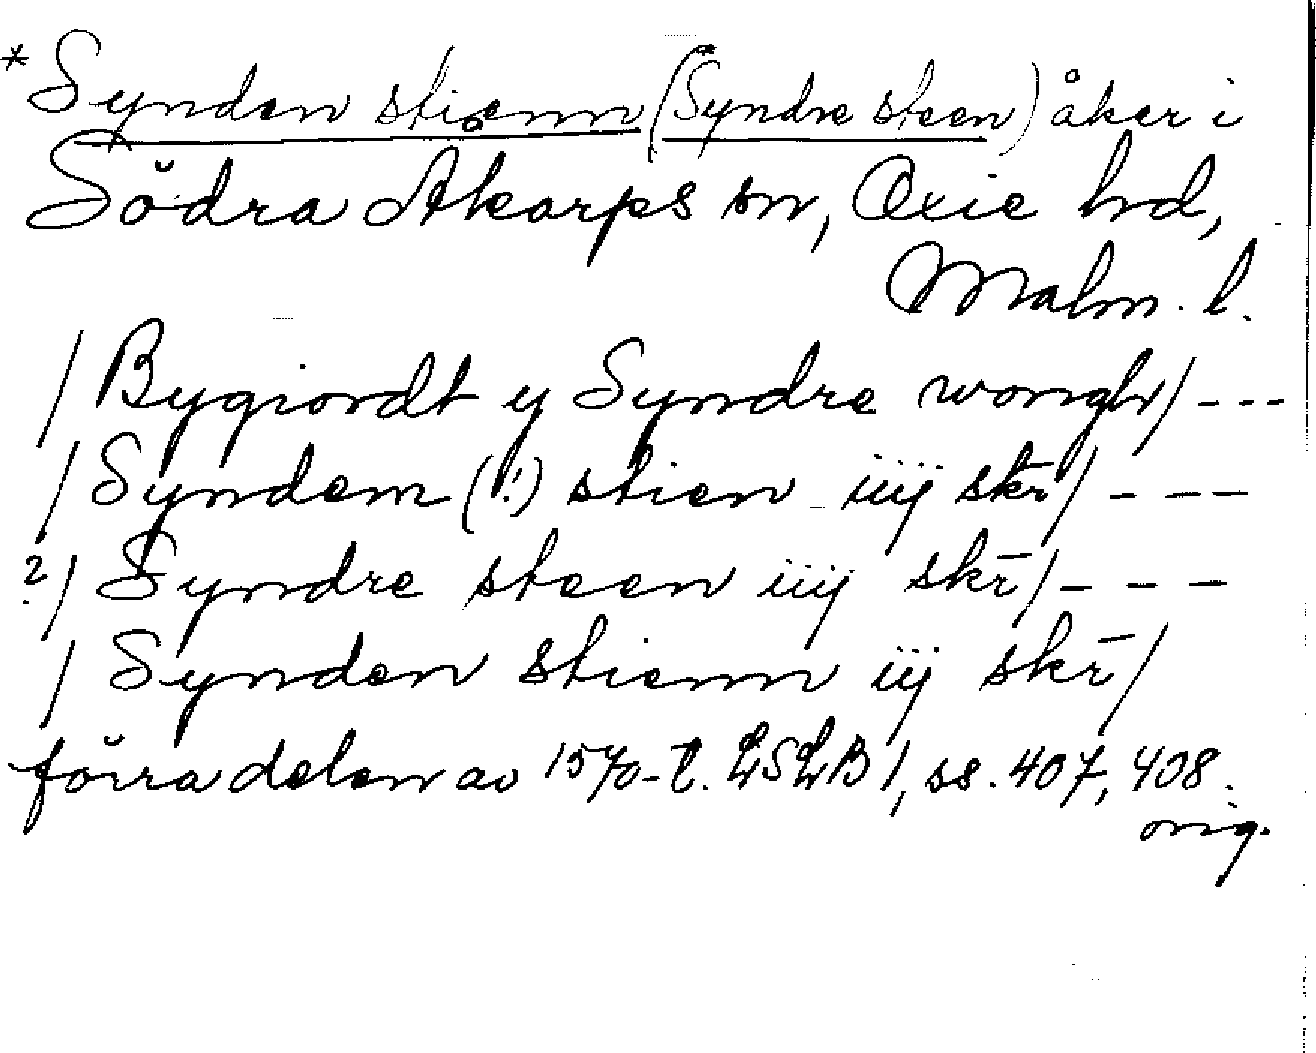 *Synden stienn (*Syndre steen) åker i
Södra Åkarps sn, Oxie hd,
Malm. l.
/ Bygiordt y Syndre wongh / ---
/ Syndem (!) stien iiij skr̄ / ---
?/ Syndre steen iiij skr̄ / ---
/ Synden stienn iij skr̄ /
förra delen av 1570-t. LSLB 1, ss. 407, 408.
orig.